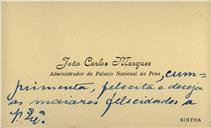 João Carlos Marques
Administrador do Palacio Nacional da Pena, cum-
primenta, felicita e deseja
as maiores felicidades a
V. Ex.ª
SINTRA